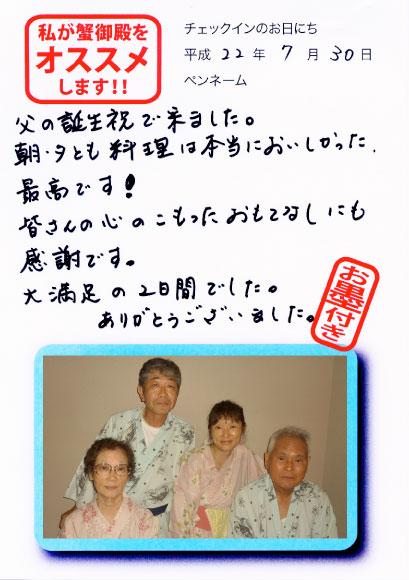 私が蟹御殿を
オススメ
します!!
チェックインのお日にち
平成 22 年 7 月 30 日
ペンネーム
父の誕生祝で来ました。
朝・夕とも料理は本当においしかった.
最高です!
皆さんの心のこもったおもてなしにも
感謝です。
大満足の2日間でした。
ありがとうございました。
お墨付き